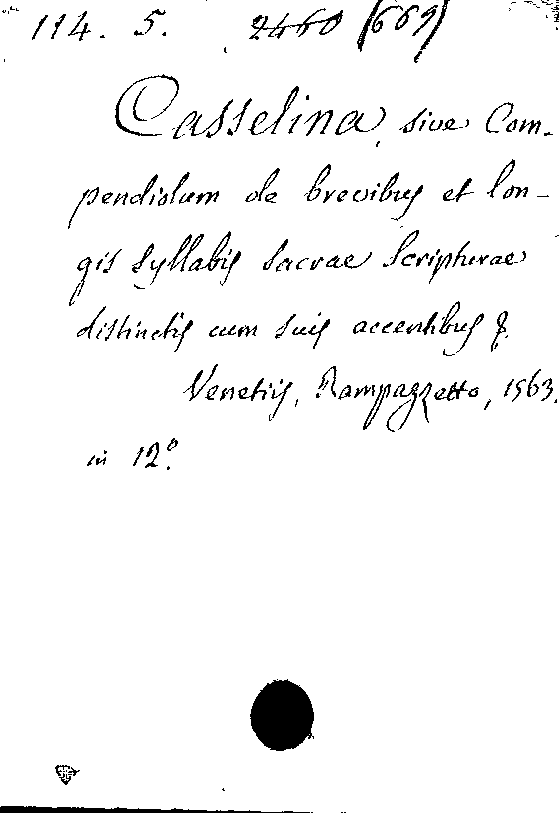 114. 5. 2460 (669)
Casselina, sive Com-
pendiolum de brevibus et lon-
gis syllabis sacrae Scripturae
distinctis cum suis accentibus &.
Venetiis, Rampazzetto, 1563.
in 12°.